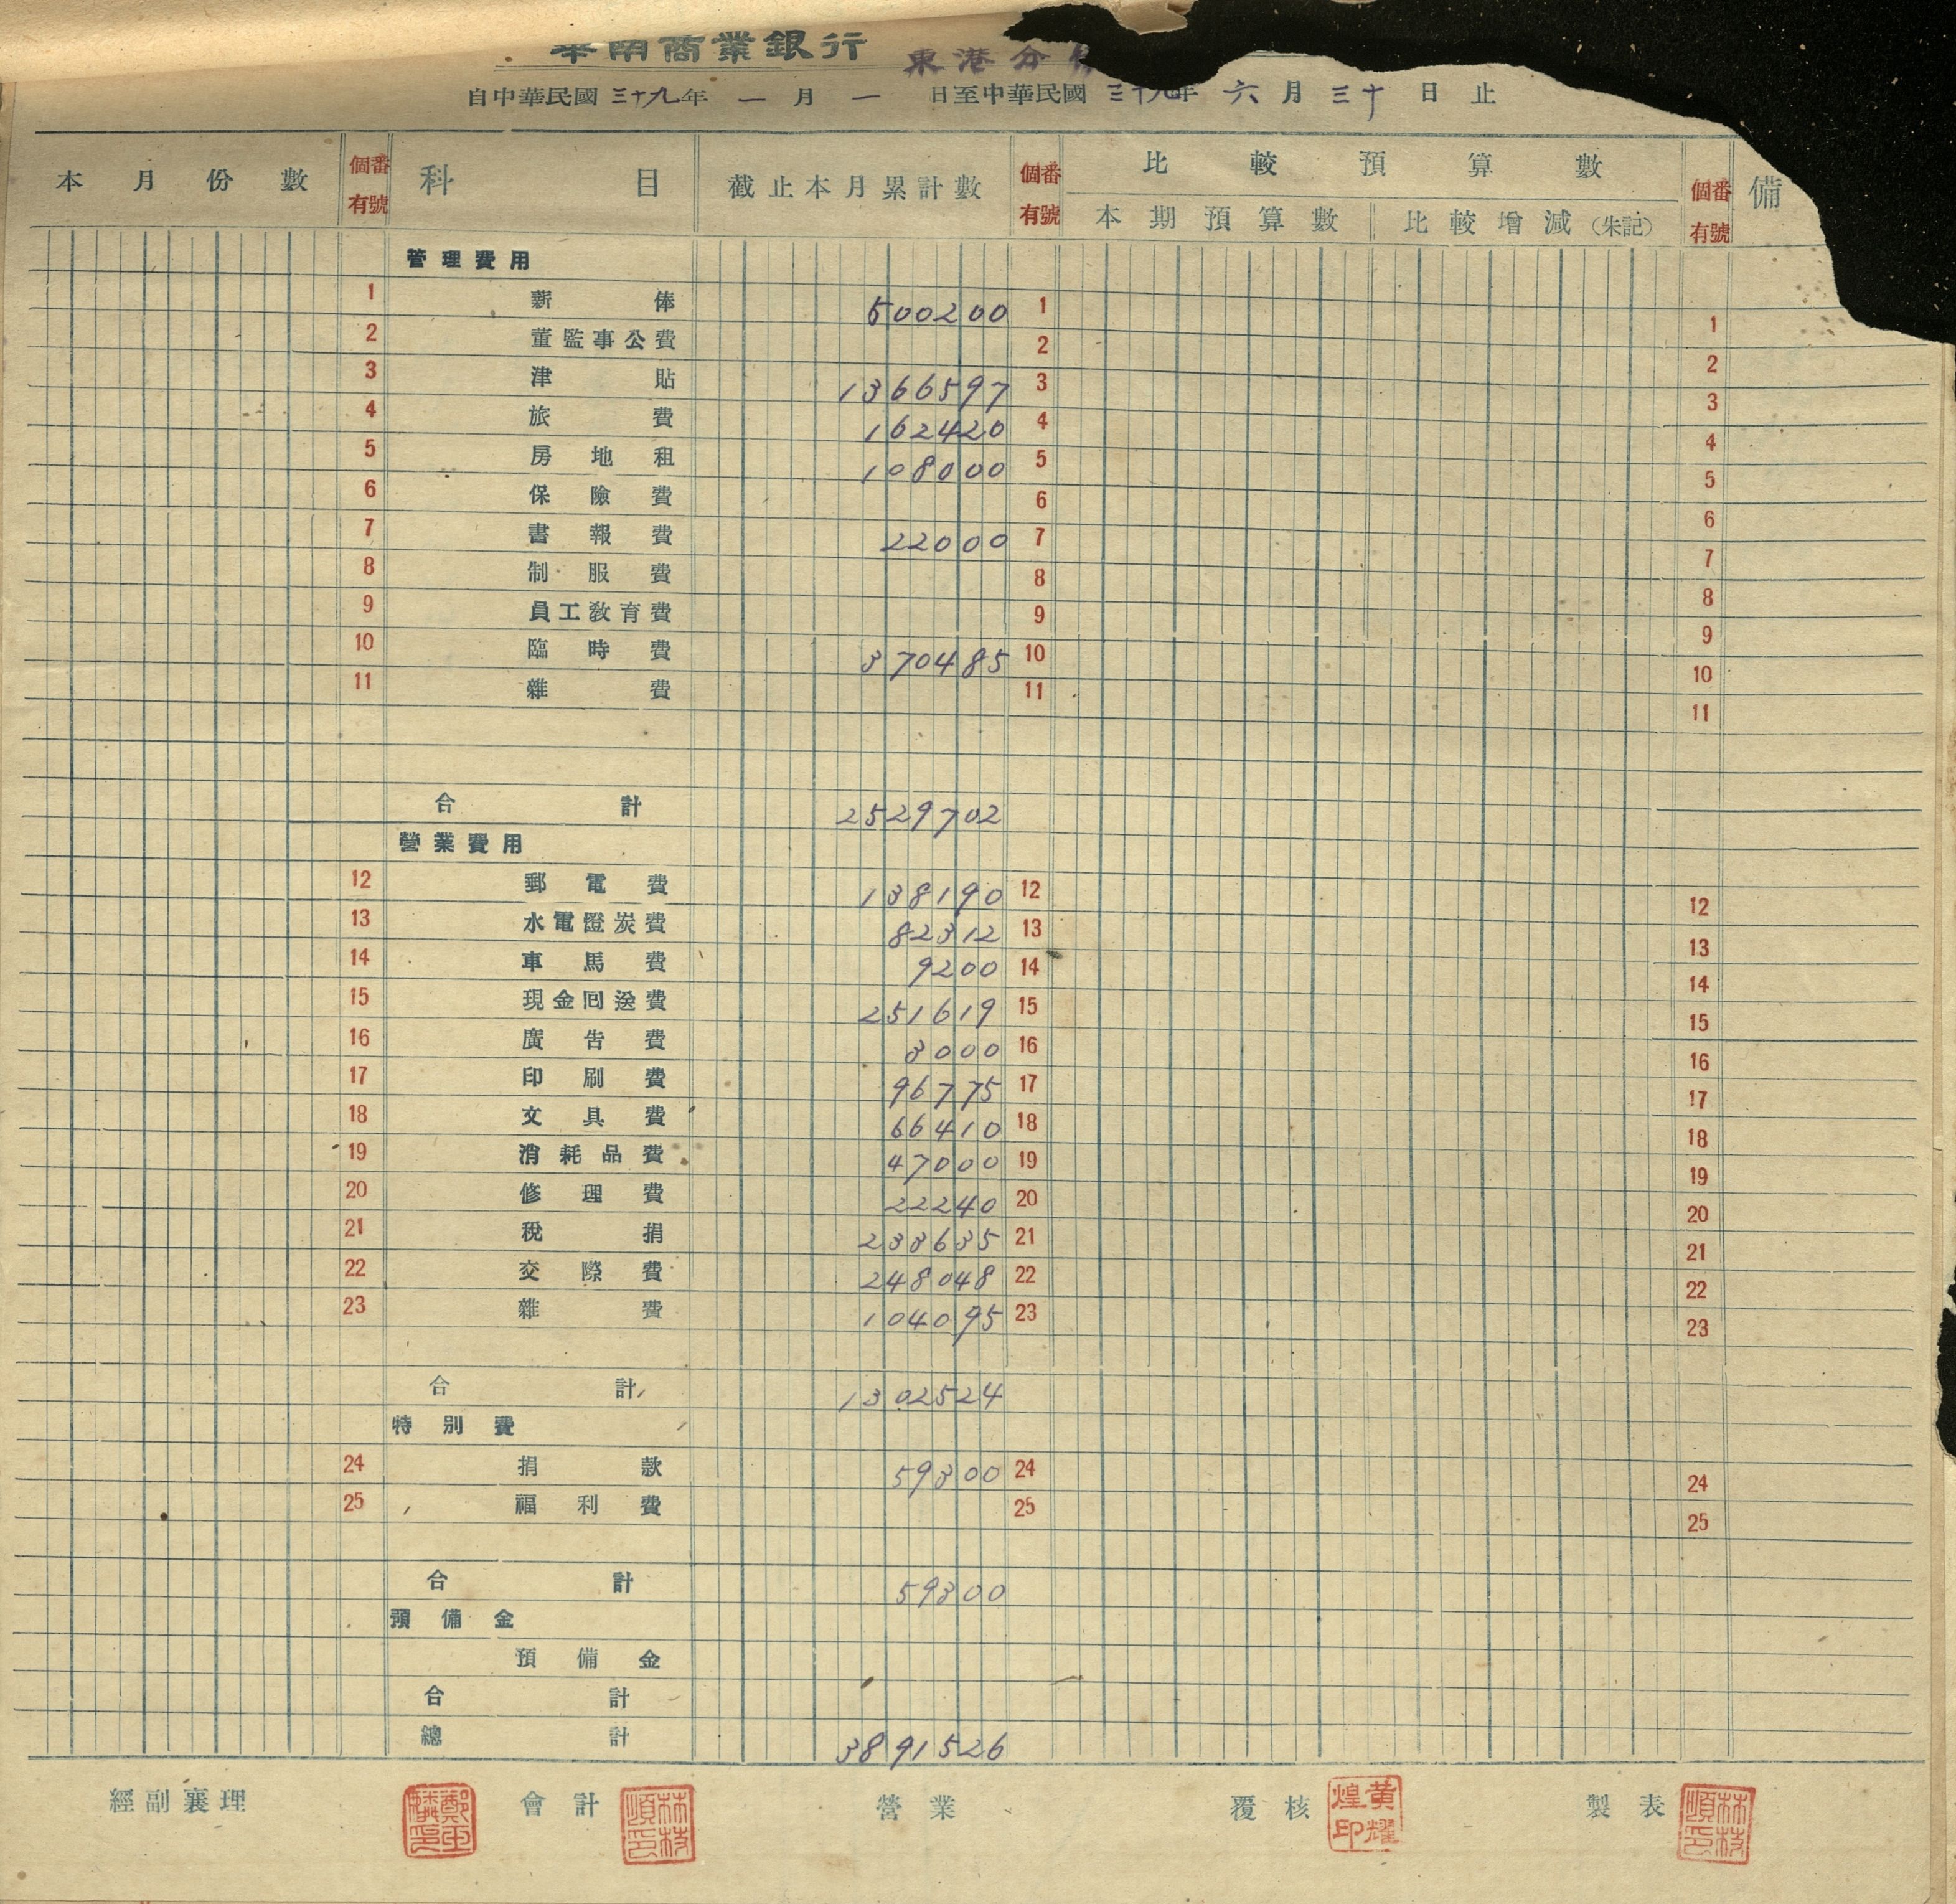 華南商業銀行 東港分
自中華民國三十九年一月一日至中華民國三十九年六月三十日止
本月份數 個有番號 科目 截止本月累計數 個有番號 比較預算數 個有番號 備
本期預算數 比較增減(朱記)
管理費用
1 薪俸 500200 1 1
2 董監事公費 2 2
3 津貼 1366597 3 3
4 旅費 162420 4 4
5 房地租 108000 5 5
6 保險費 6 6
7 書報費 22000 7 7
8 制服費 8 8
9 員工教育費 9 9
10 臨時費 370485 10 10
11 雜費 11 11
合計 2529702
營業費用
12 郵電費 138190 12 12
13 水電燈炭費 82312 13 13
14 車馬費 9200 14 14
15 現金回送費 251619 15 15
16 廣告費 3000 16 16
17 印刷費 96775 17 17
18 文具費 66410 18 18
19 消耗品費 47000 19 19
20 修理費 22240 20 20
21 稅捐 233635 21 21
22 交際費 248048 22 22
23 雜費 104095 23 23
合計 1302524
特別費
24 捐款 59300 24 24
25 福利費 25 25
合計 59300
預備金
預備金
合計
總計 3891526
經副襄理 會計 林枝順印 營業 覆核 黃耀煌印 製表 林枝順印